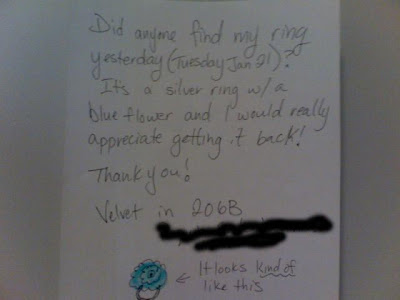 Did anyone find my ring
yesterday (Tuesday Jan 21)?
It's a silver ring w/a
blue flower and I would really
appreciate getting it back!
Thank you!
Velvet in 206B
← It looks kind of
like this